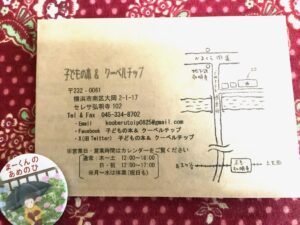 子どもの本 & クーベルチップ
〒232-0061
横浜市南区大岡 2-1-17
セレサ弘明寺 102
Tel & Fax 045-334-8702
・Email kooberutoip0825@gmail.com
・Facebook 子どもの本& クーベルチップ
・X(旧Twitter) 子どもの本& クーベルチップ
※営業日・営業時間はカレンダーをご覧ください
通常：木～土 12:00～18:00
日・祝 12:00～17:00
※月～水は休業(祝日も)
かまくら街道
地下鉄
弘明寺
よこはま
京急
弘明寺
上大岡
まーくんの
あめのひ